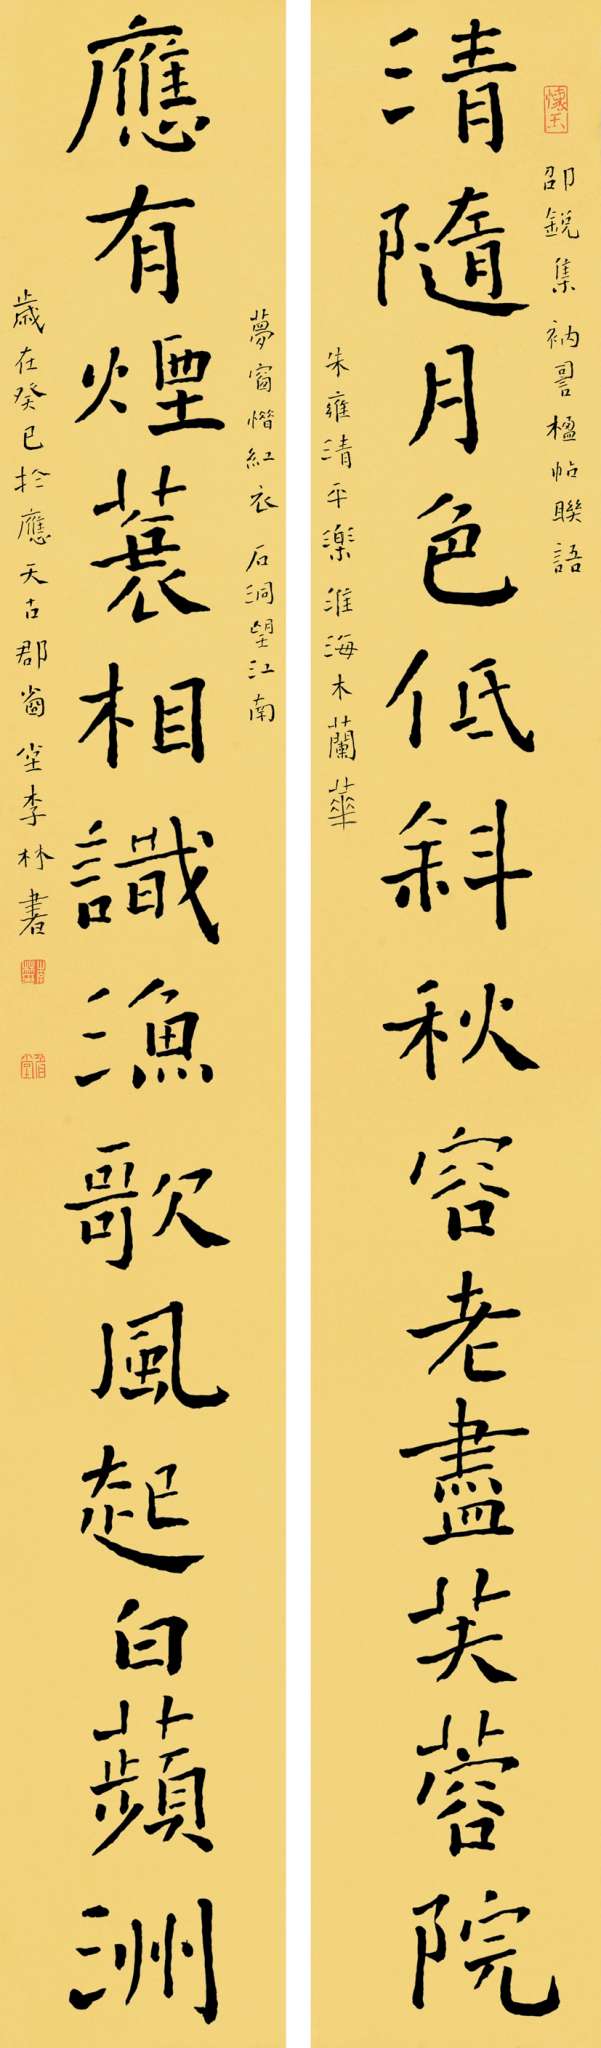 懷玉
邵銳集衲詞楹帖聯語
清隨月色低斜秋容老盡芙蓉院
朱雍清平樂 淮海木蘭華
夢窗惜紅衣 石洞望江南
應有煙蓑相識漁歌風起白蘋洲
歲在癸巳於應天古郡李林書